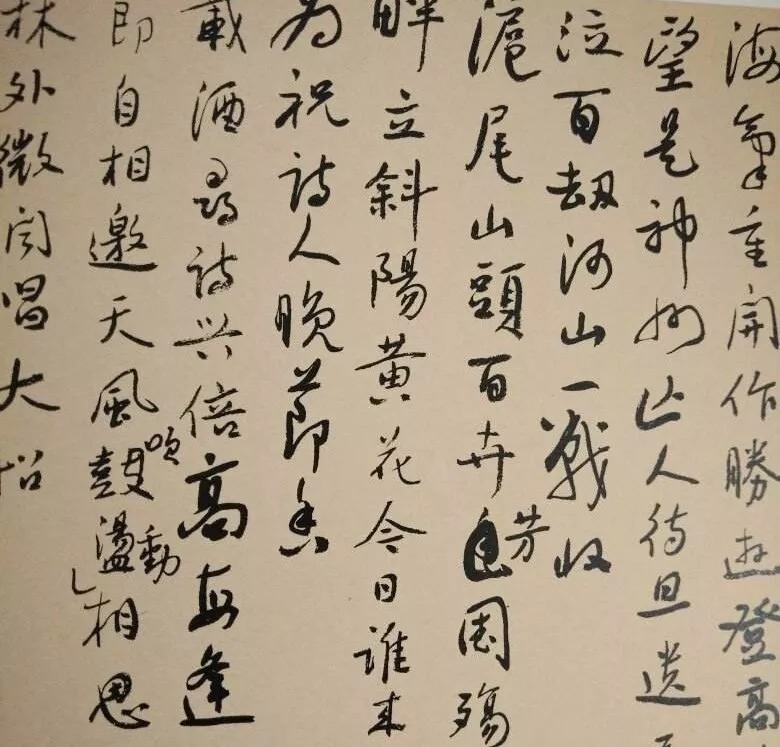 海氣重開作勝遊登高
望是神州此人待旦遗
泣百劫河山一戰收
滬尾山頭百卉芳國殤
畔立斜陽黃花今日誰来
为祝詩人晚節香
載酒尋詩兴倍高每逢
即自相邀天風鼓吹盪動相思
林外微闻唱大